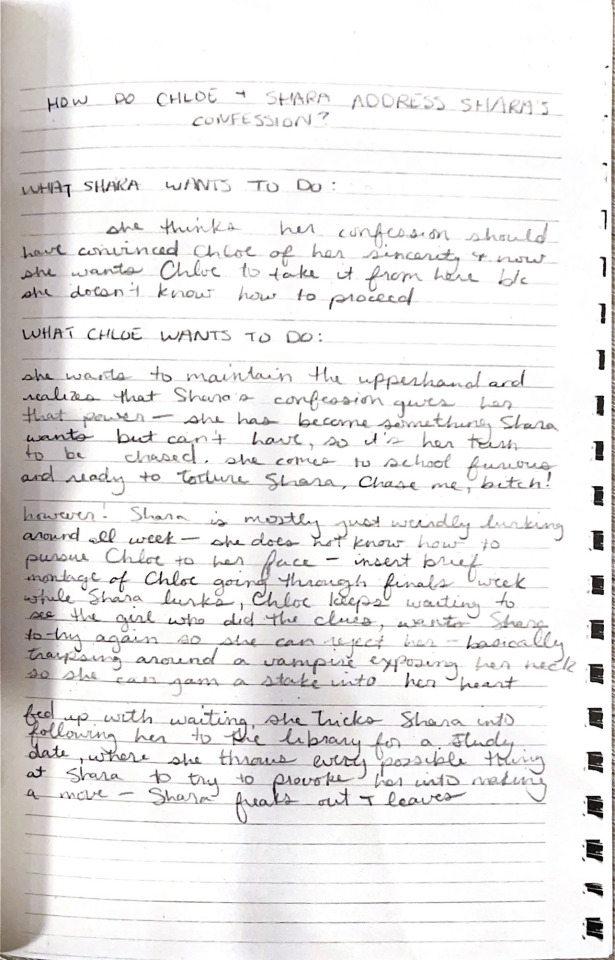 HOW DO CHLOE + SHARA ADDRESS SHARA'S
CONFESSION?
WHAT SHARA WANTS TO DO:
she thinks her confession should
have convinced Chloe of her sincerity + now
she wants Chloe to take it from here b/c
she doesn't know how to proceed
WHAT CHLOE WANTS TO DO:
she wants to maintain the upperhand and
realizes that Shara's confession gives her
that power — she has become something Shara
wants but can't have, so it's her turn
to be chased. she comes to school furious
and ready to torture Shara, Chase me, bitch!
however! Shara is mostly just weirdly lurking
around all week — she does not know how to
pursue Chloe to her face — insert brief
montage of Chloe going through finals week
while Shara lurks, Chloe keeps waiting to
see the girl who did the clues, wants Shara
to try again so she can reject her — basically
traipsing around a vampire exposing her neck
so she can jam a stake into her heart
fed up with waiting, she tricks Shara into
following her to the library for a study
date, where she throws every possible thing
at Shara to try to provoke her into making
a move — Shara freaks out + leaves